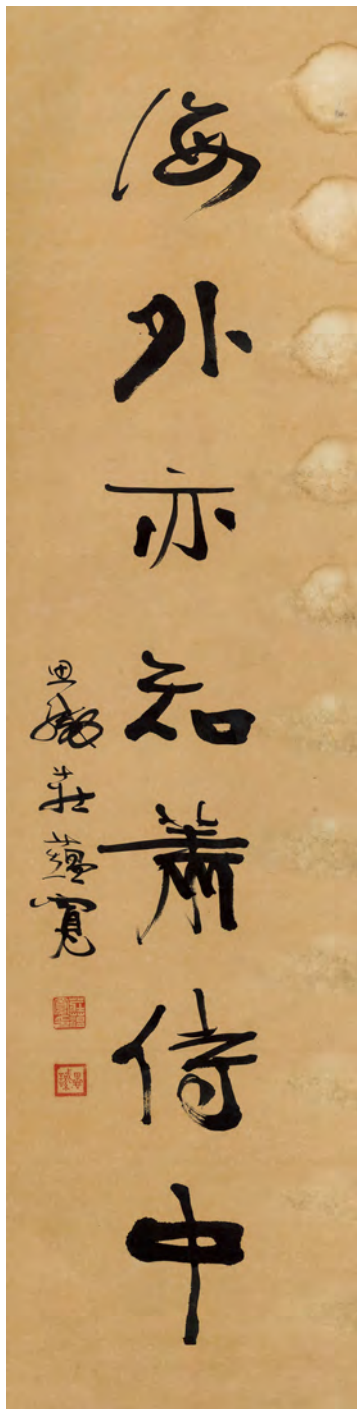 海外亦知蕭侍中
思緘莊蘊寬